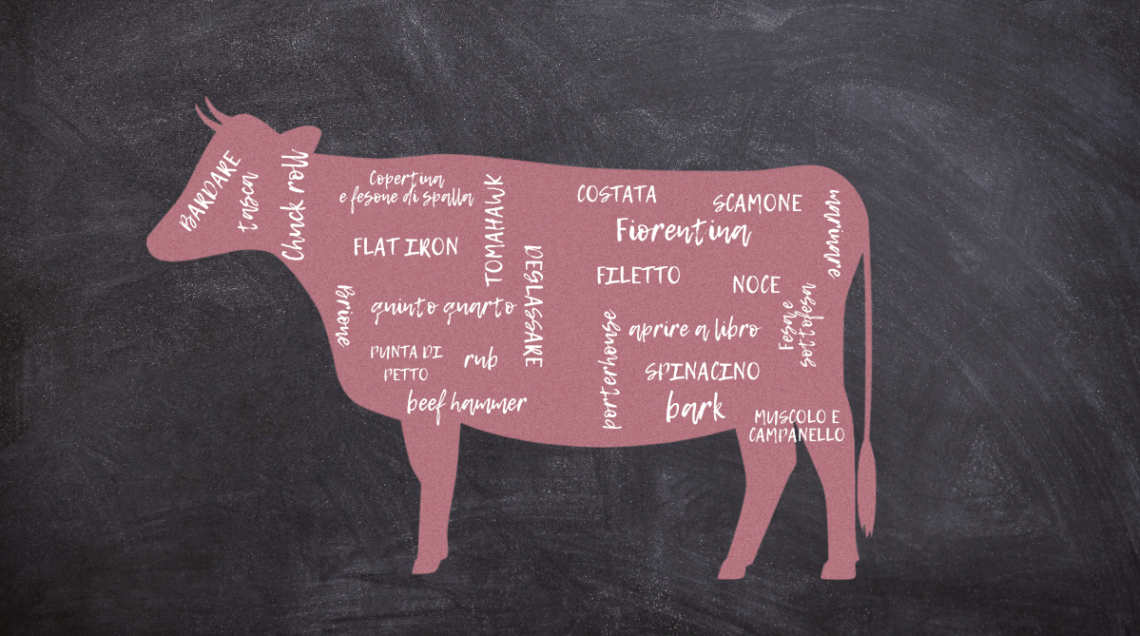 BARDARE
tasca
Chuck roll
Copertina
e fesone di spalla
FLAT IRON
TOMAHAWK
DEGLASSARE
Brione
quinto quarto
PUNTA DI
PETTO
rub
beef hammer
COSTATA
SCAMONE
Fiorentina
marinare
FILETTO
NOCE
Fesa e
sottofesa
porterhouse
aprire a libro
SPINACINO
bark
MUSCOLO E
CAMPANELLO